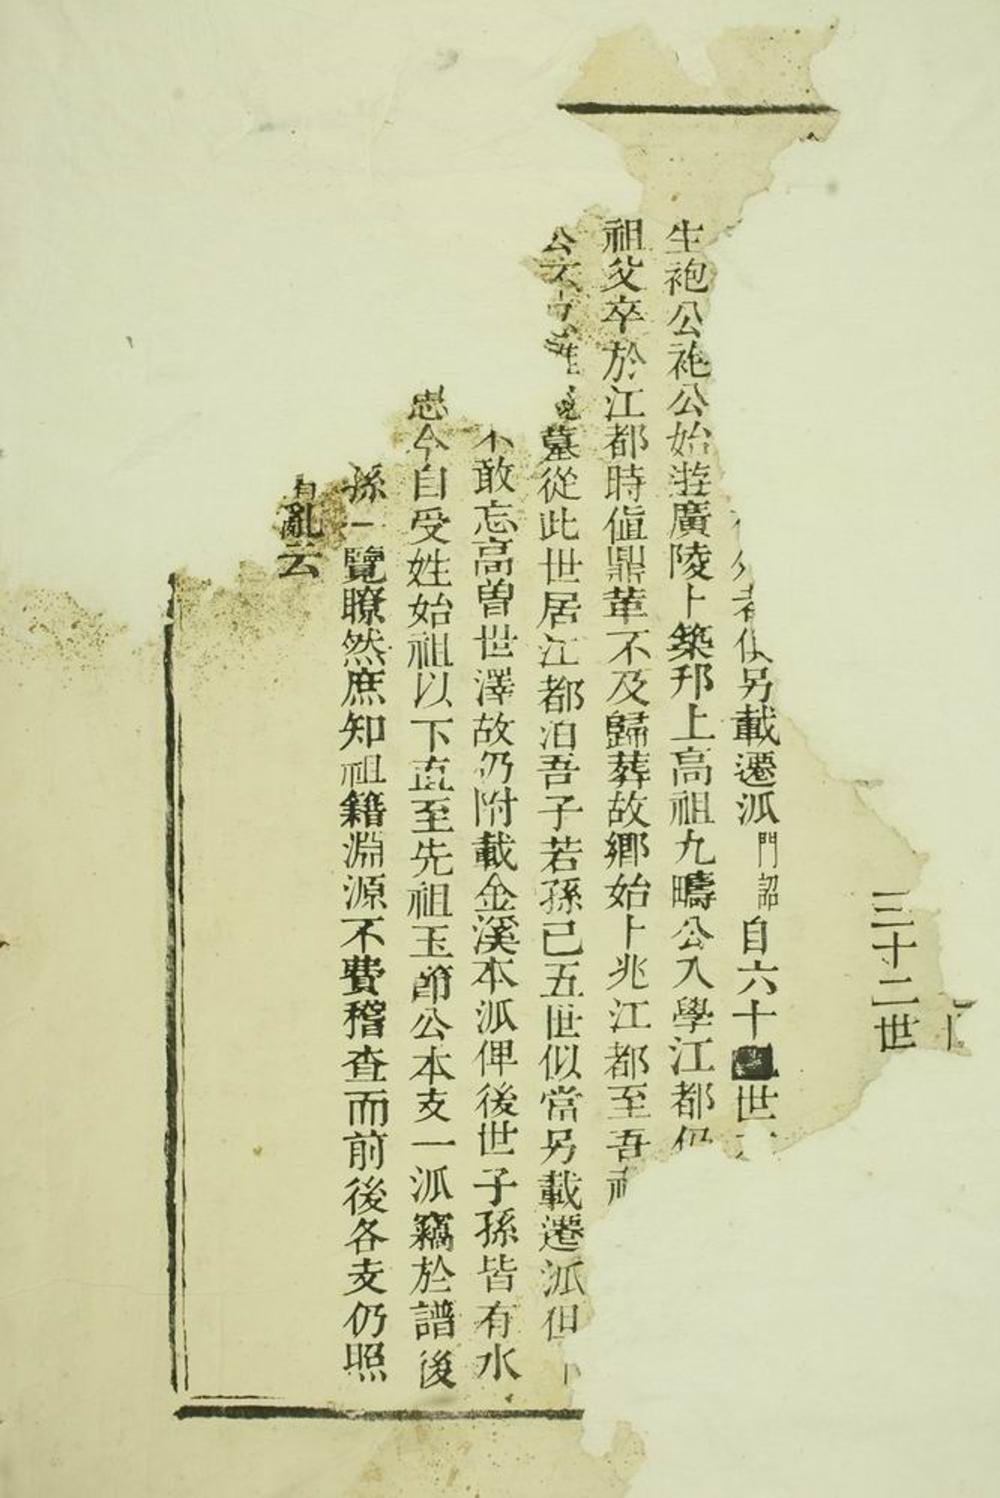 三十二世
者似另載遷派門詔自六十世
生袍公袍公始遊廣陵卜築邗上高祖九疇公入學江都仍
祖父卒於江都時值鼎革不及歸葬故鄉始卜兆江都至吾
公墓從此世居江都洎吾子若孫已五世似當另載遷派但
不敢忘高曾世澤故仍附載金溪本派俾後世子孫皆有水
忠今自受姓始祖以下直至先祖玉節公本支一派竊於譜後
孫一覽瞭然庶知祖籍淵源不費稽查而前後各支仍照
亂云